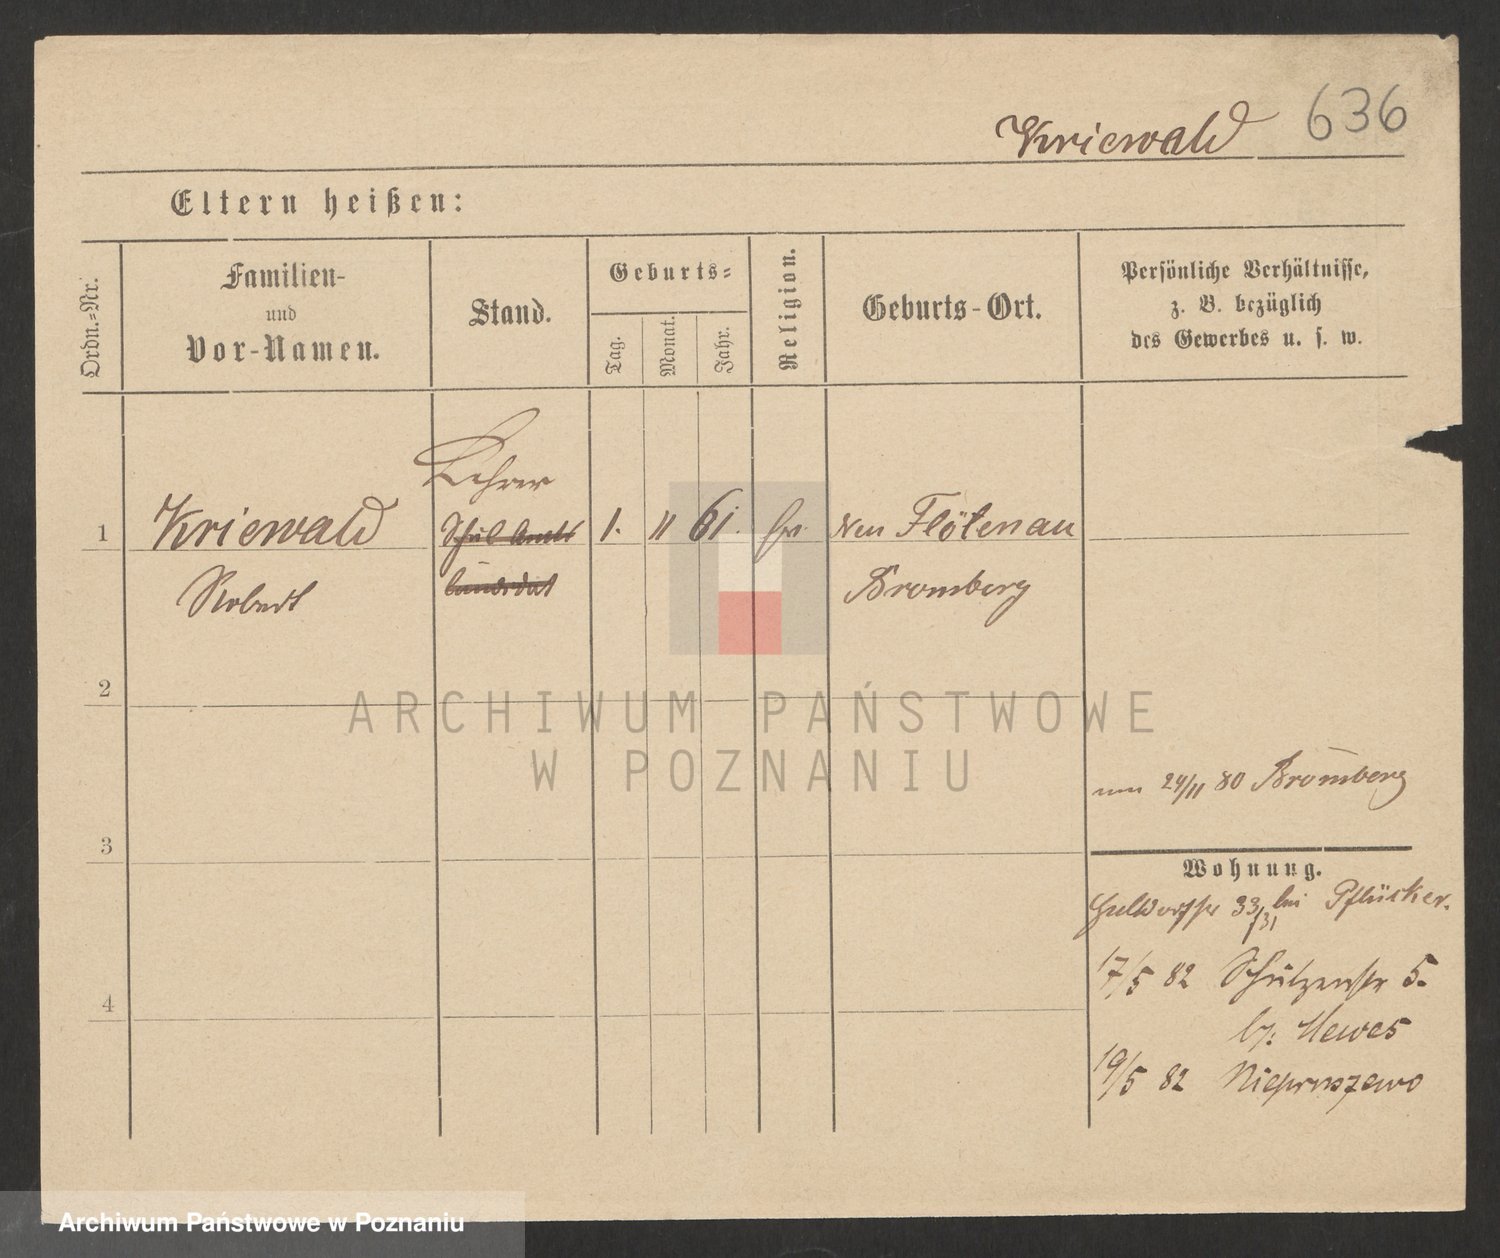 Kriewald 636
Eltern heißen:
Ordn.-Nr.
Familien-
und
Vor-Namen.
Stand.
Geburts-
Tag.
Monat.
Jahr.
Religion.
Geburts-Ort.
Persönliche Verhältnisse,
z. B. bezüglich
des Gewerbes u. s. w.
Lehrer
1 Kriewald Schul Amts 1. 11 61. Neu Flötenau
Robert Candidat Bromberg
2
ARCHIWUM PAŃSTWOWE
W POZNANIU
24/11 80 Bromberg
3
Wohnung.
33/31 bei Pflücker.
17/5 82 Schützenstr 5.
4
b/. Hewes
19/5 82 Niepruszewo
Archiwum Państwowe w Poznaniu